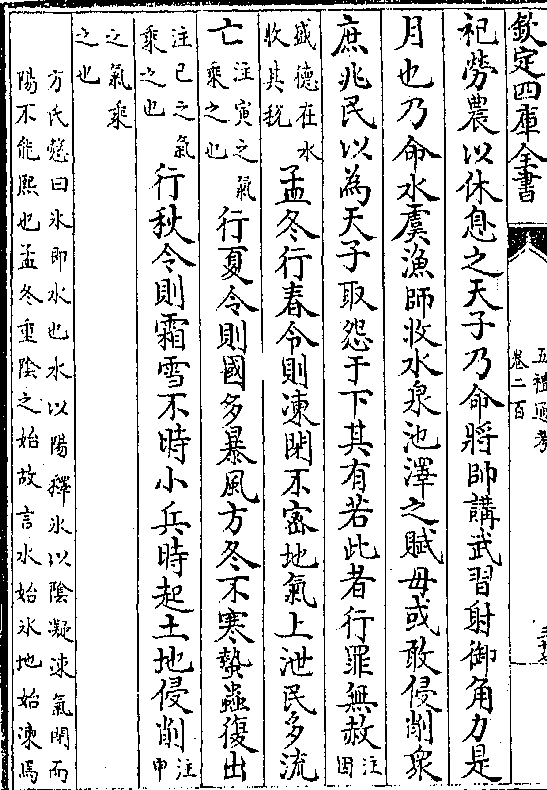 欽定四庫全書
五禮通考
卷二百
祀勞農以休息之天子乃命將帥講武習射御角力是
月也乃命水虞漁師收水泉池澤之賦毋或敢侵削衆
庶兆民以為天子取怨于下其有若此者行罪無赦注因
盛德在水收其稅孟冬行春令則凍閉不密地氣上泄民多流
亡注寅之氣乘之也行夏令則國多暴風方冬不寒蟄蟲復出
注巳之氣乘之也行秋令則霜雪不時小兵時起土地侵削注申
之氣乘之也
方氏慤曰氷即水也水以陽釋氷以陰凝凍氣閉而
陽不能熙也孟冬重陰之始故言水始氷地始凍焉